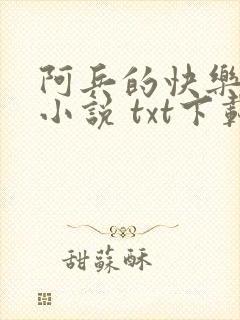 阿兵的快樂
小說 txt下載
甜蘇酥